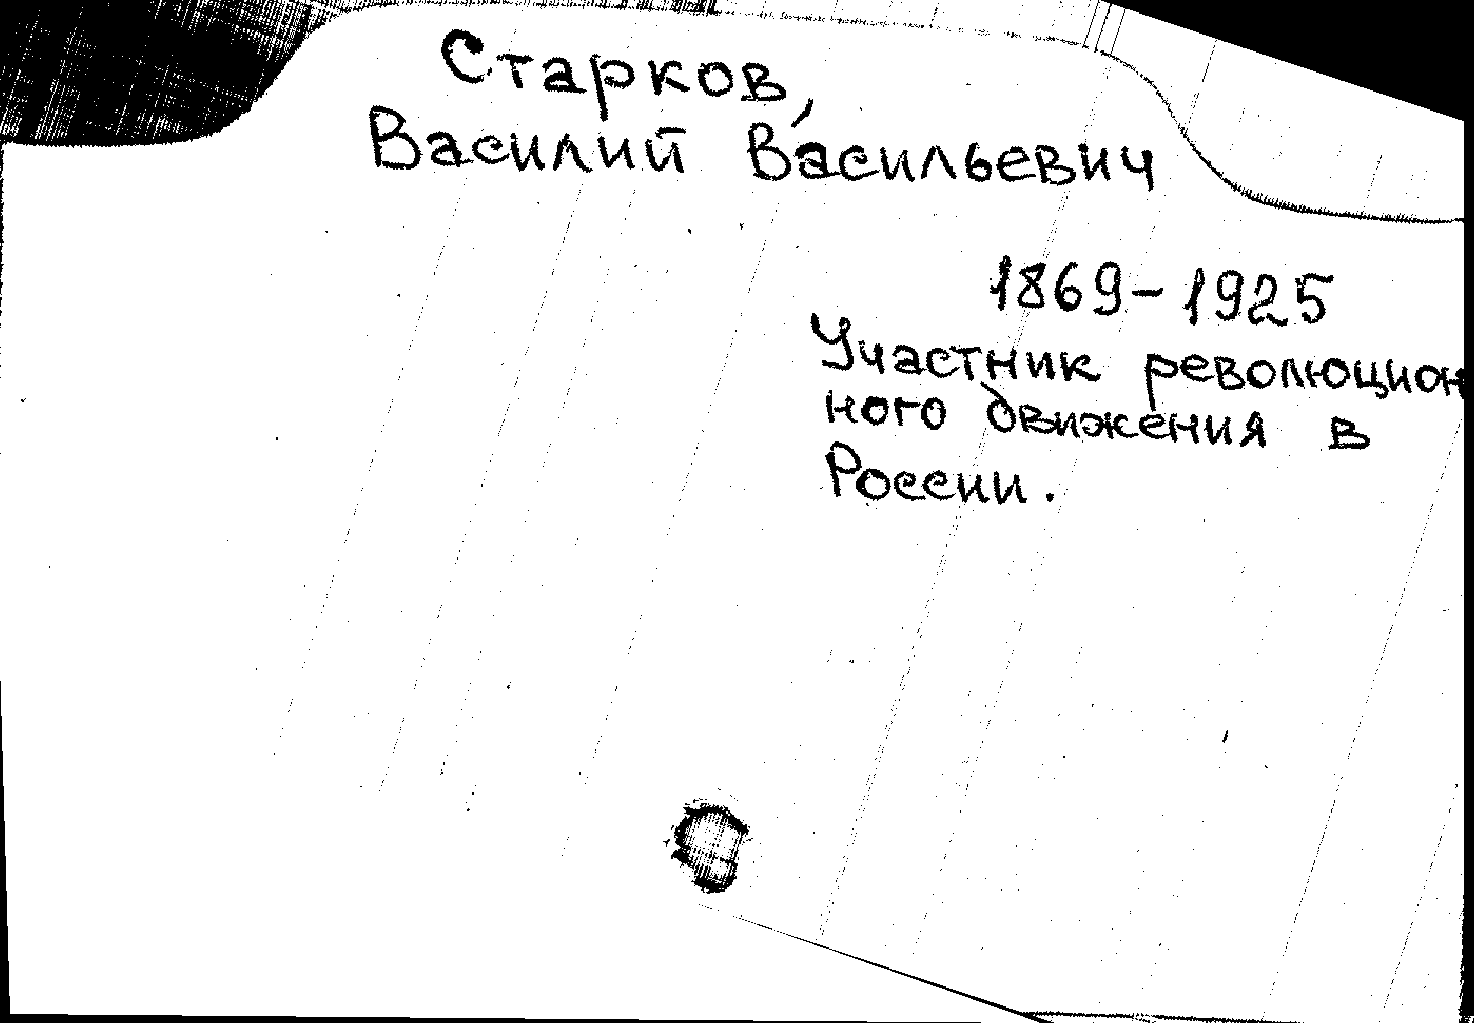 Старков,
Василий Васильевич
1869-1925
Участник революцион
ного движения в
России.